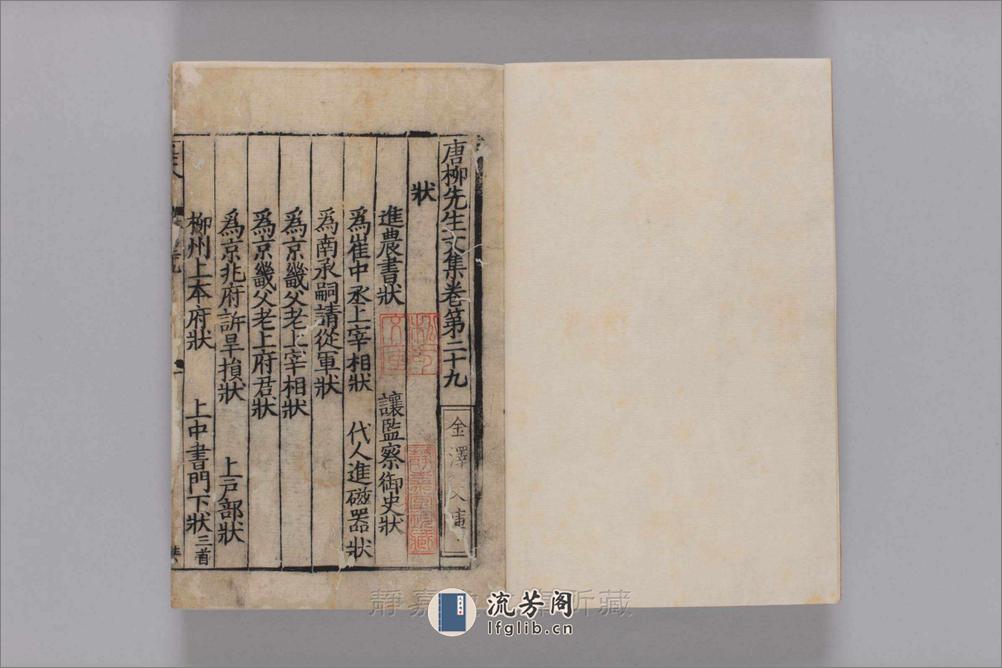 唐柳先生文集卷第二十九
金澤文庫
狀
進農書狀 讓監察御史狀
為崔中丞上宰相狀 代人進磁器狀
為南承嗣請從軍狀
為京畿父老上宰相狀
為京畿父老上府君狀
為京兆府訴旱損狀 上戶部狀
柳州上本府狀 上中書門下狀三首
松方文庫
靜嘉堂現藏
靜嘉 所藏
流芳阁
lfglib.cn